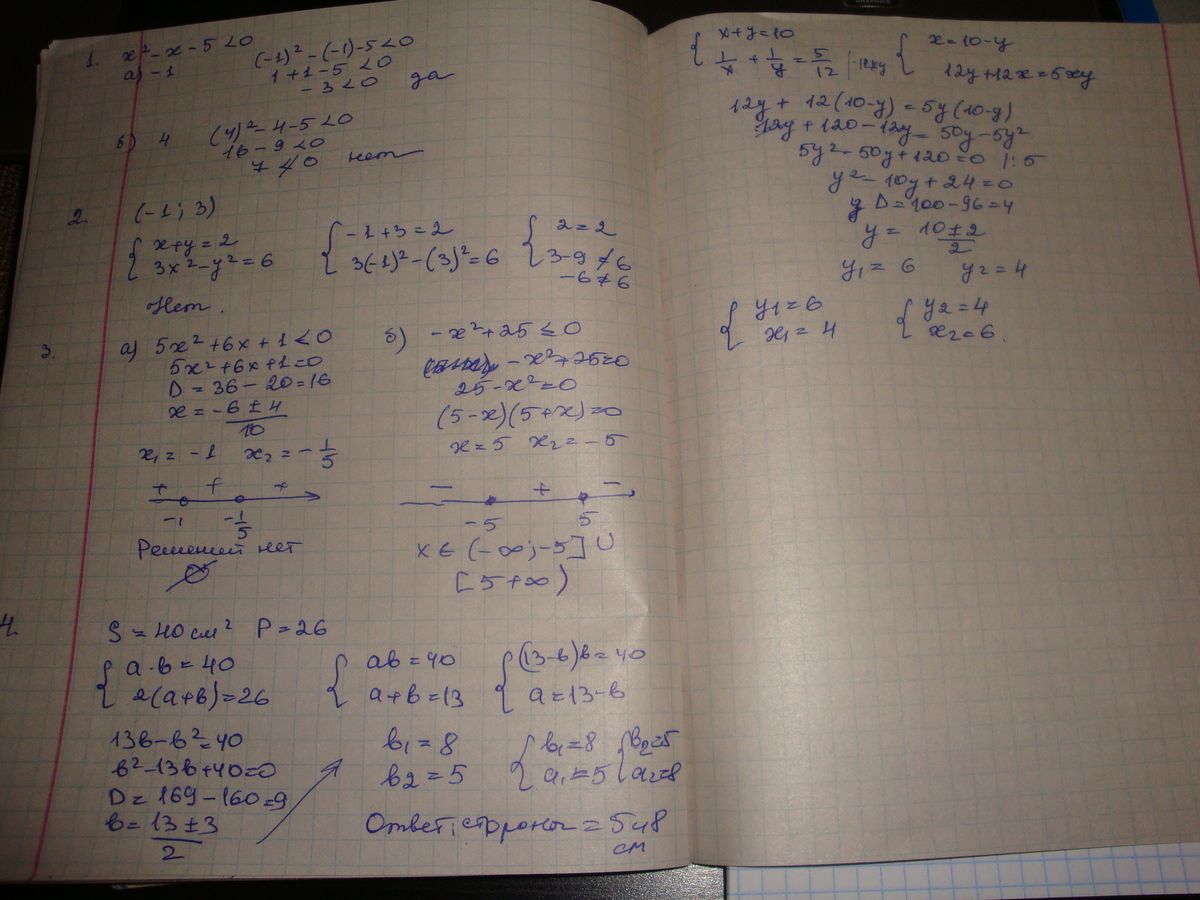 1. x² - x - 5 < 0
а) -1 (-1)² - (-1) - 5 < 0
1 + 1 - 5 < 0
- 3 < 0 да
б) 4 (4)² - 4 - 5 < 0
16 - 9 < 0
7 ≮ 0 нет
2. (-1; 3)
{ x + y = 2 { -1 + 3 = 2 { 2 = 2
3x² - y² = 6 3(-1)² - (3)² = 6 3 - 9 ≠ 6
-6 ≠ 6
Нет.
3. а) 5x² + 6x + 1 < 0
5x² + 6x + 1 = 0
D = 36 - 20 = 16
x = -6 ± 4 / 10
x₁ = -1 x₂ = -1/5
+ + +
-1 -1/5
Решений нет
∅
б) -x² + 25 ≤ 0
-x² + 25 = 0
25 - x² = 0
(5 - x)(5 + x) = 0
x = 5 x₂ = -5
- + -
-5 5
x ∈ (-∞; -5] ∪
[5 +∞)
4. S = 40 см² P = 26
{ a · b = 40 { ab = 40 { (13 - b)b = 40
2(a + b) = 26 a + b = 13 a = 13 - b
13b - b² = 40
b² - 13b + 40 = 0
D = 169 - 160 = 9
b = 13 ± 3 / 2
b₁ = 8 { b₁ = 8 { b₂ = 5
b₂ = 5 a₁ = 5 a₂ = 8
Ответ: стороны = 5 и 8
см
{ x + y = 10 { x = 10 - y
1/x + 1/y = 5/12 | · 12xy 12y + 12x = 5xy
12y + 12(10 - y) = 5y(10 - y)
12y + 120 - 12y = 50y - 5y²
5y² - 50y + 120 = 0 | : 5
y² - 10y + 24 = 0
y D = 100 - 96 = 4
y = 10 ± 2 / 2
y₁ = 6 y₂ = 4
{ y₁ = 6 { y₂ = 4
x₁ = 4 x₂ = 6.